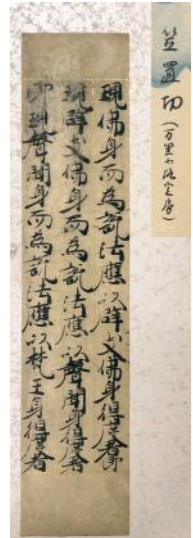 笠置切(万里小路宣房)
現佛身而為說法應以辟支佛身得度者即
現辟支佛身而為說法應以聲聞身得度者
即現聲聞身而為說法應以梵王身得度者